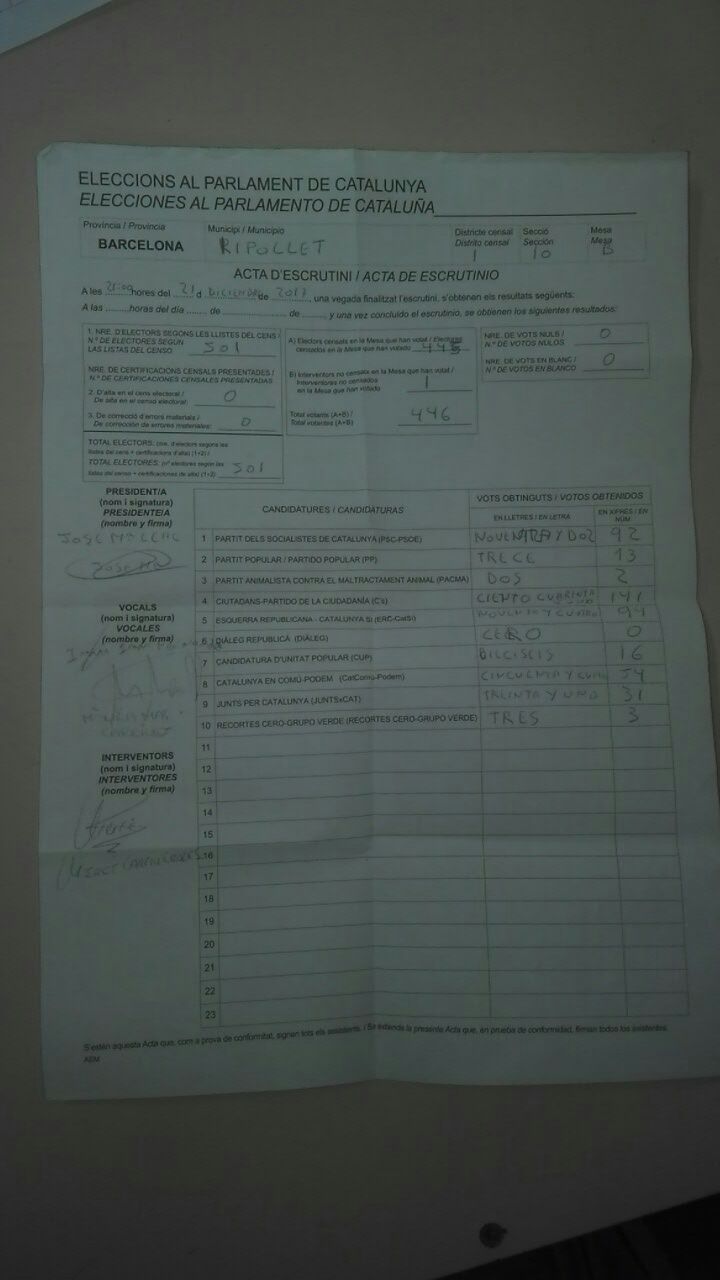 ELECCIONS AL PARLAMENT DE CATALUNYA
ELECCIONES AL PARLAMENTO DE CATALUÑA
Província / Provincia
BARCELONA
Municipi / Municipio
RIPOLLET
Districte censal Secció Mesa
Distrito censal Sección Mesa
1 10 B
ACTA D'ESCRUTINI / ACTA DE ESCRUTINIO
A les 21:09 hores del 21 d DICIEMBRE de 2017, una vegada finalitzat l'escrutini, s'obtenen els resultats següents:
A las ......... horas del día ...... de ............ de ......... y una vez concluido el escrutinio, se obtienen los siguientes resultados:
1. NRE. D'ELECTORS SEGONS LES LLISTES DEL CENS /
N.º DE ELECTORES SEGÚN
LAS LISTAS DEL CENSO 501
NRE. DE CERTIFICACIONS CENSALS PRESENTADES /
N.º DE CERTIFICACIONES CENSALES PRESENTADAS
2. D'alta en el cens electoral /
De alta en el censo electoral: 0
3. De correcció d'errors materials /
De corrección de errores materiales: 0
TOTAL ELECTORS: (nre. d'electors segons les
llistes del cens + certificacions d'alta) (1+2) /
TOTAL ELECTORES: (nº electores según las
listas del censo + certificaciones de alta) (1+2) 501
A) Electors censats en la Mesa que han votat / Electores
censados en la Mesa que han votado 445
B) Interventors no censats en la Mesa que han votat /
Interventores no censados
en la Mesa que han votado 1
Total votants (A+B) /
Total votantes (A+B) 446
NRE. DE VOTS NULS /
N.º DE VOTOS NULOS 0
NRE. DE VOTS EN BLANC /
N.º DE VOTOS EN BLANCO 0
PRESIDENT/A
(nom i signatura)
PRESIDENTE/A
(nombre y firma)
VOCALS
(nom i signatura)
VOCALES
(nombre y firma)
INTERVENTORS
(nom i signatura)
INTERVENTORES
(nombre y firma)
CANDIDATURES / CANDIDATURAS
VOTS OBTINGUTS / VOTOS OBTENIDOS
EN LLETRES / EN LETRA EN XIFRES / EN NÚM.
1 PARTIT DELS SOCIALISTES DE CATALUNYA (PSC-PSOE) NOVENTA Y DOS 92
2 PARTIT POPULAR / PARTIDO POPULAR (PP) TRECE 13
3 PARTIT ANIMALISTA CONTRA EL MALTRACTAMENT ANIMAL (PACMA) DOS 2
4 CIUTADANS-PARTIDO DE LA CIUDADANÍA (C's) CIENTO CUARENTA UNO 141
5 ESQUERRA REPUBLICANA - CATALUNYA SÍ (ERC-CatSí) NOVENTA Y CUATRO 94
6 DIÀLEG REPUBLICÀ (DIÀLEG) CERO 0
7 CANDIDATURA D'UNITAT POPULAR (CUP) DIECISEIS 16
8 CATALUNYA EN COMÚ-PODEM (CatComú-Podem) CINCUENTA Y CUATRO 54
9 JUNTS PER CATALUNYA (JUNTSxCAT) TREINTA Y UNO 31
10 RECORTES CERO-GRUPO VERDE (RECORTES CERO-GRUPO VERDE) TRES 3
11
12
13
14
15
16
17
18
19
20
21
22
23
S'estén aquesta Acta que, com a prova de conformitat, signen tots els assistents. / Se extiende la presente Acta que, en prueba de conformidad, firman todos los asistentes.